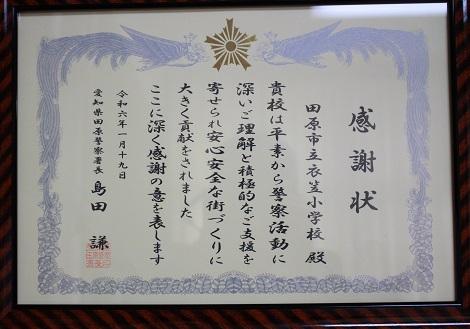 感謝状
田原市立衣笠小学校 殿
貴校は平素から警察活動に
深いご理解と積極的なご支援を
寄せられ安心安全な街づくりに
大きく貢献をされました
ここに深く感謝の意を表します
令和六年一月十九日
愛知県田原警察署長 島田 謙